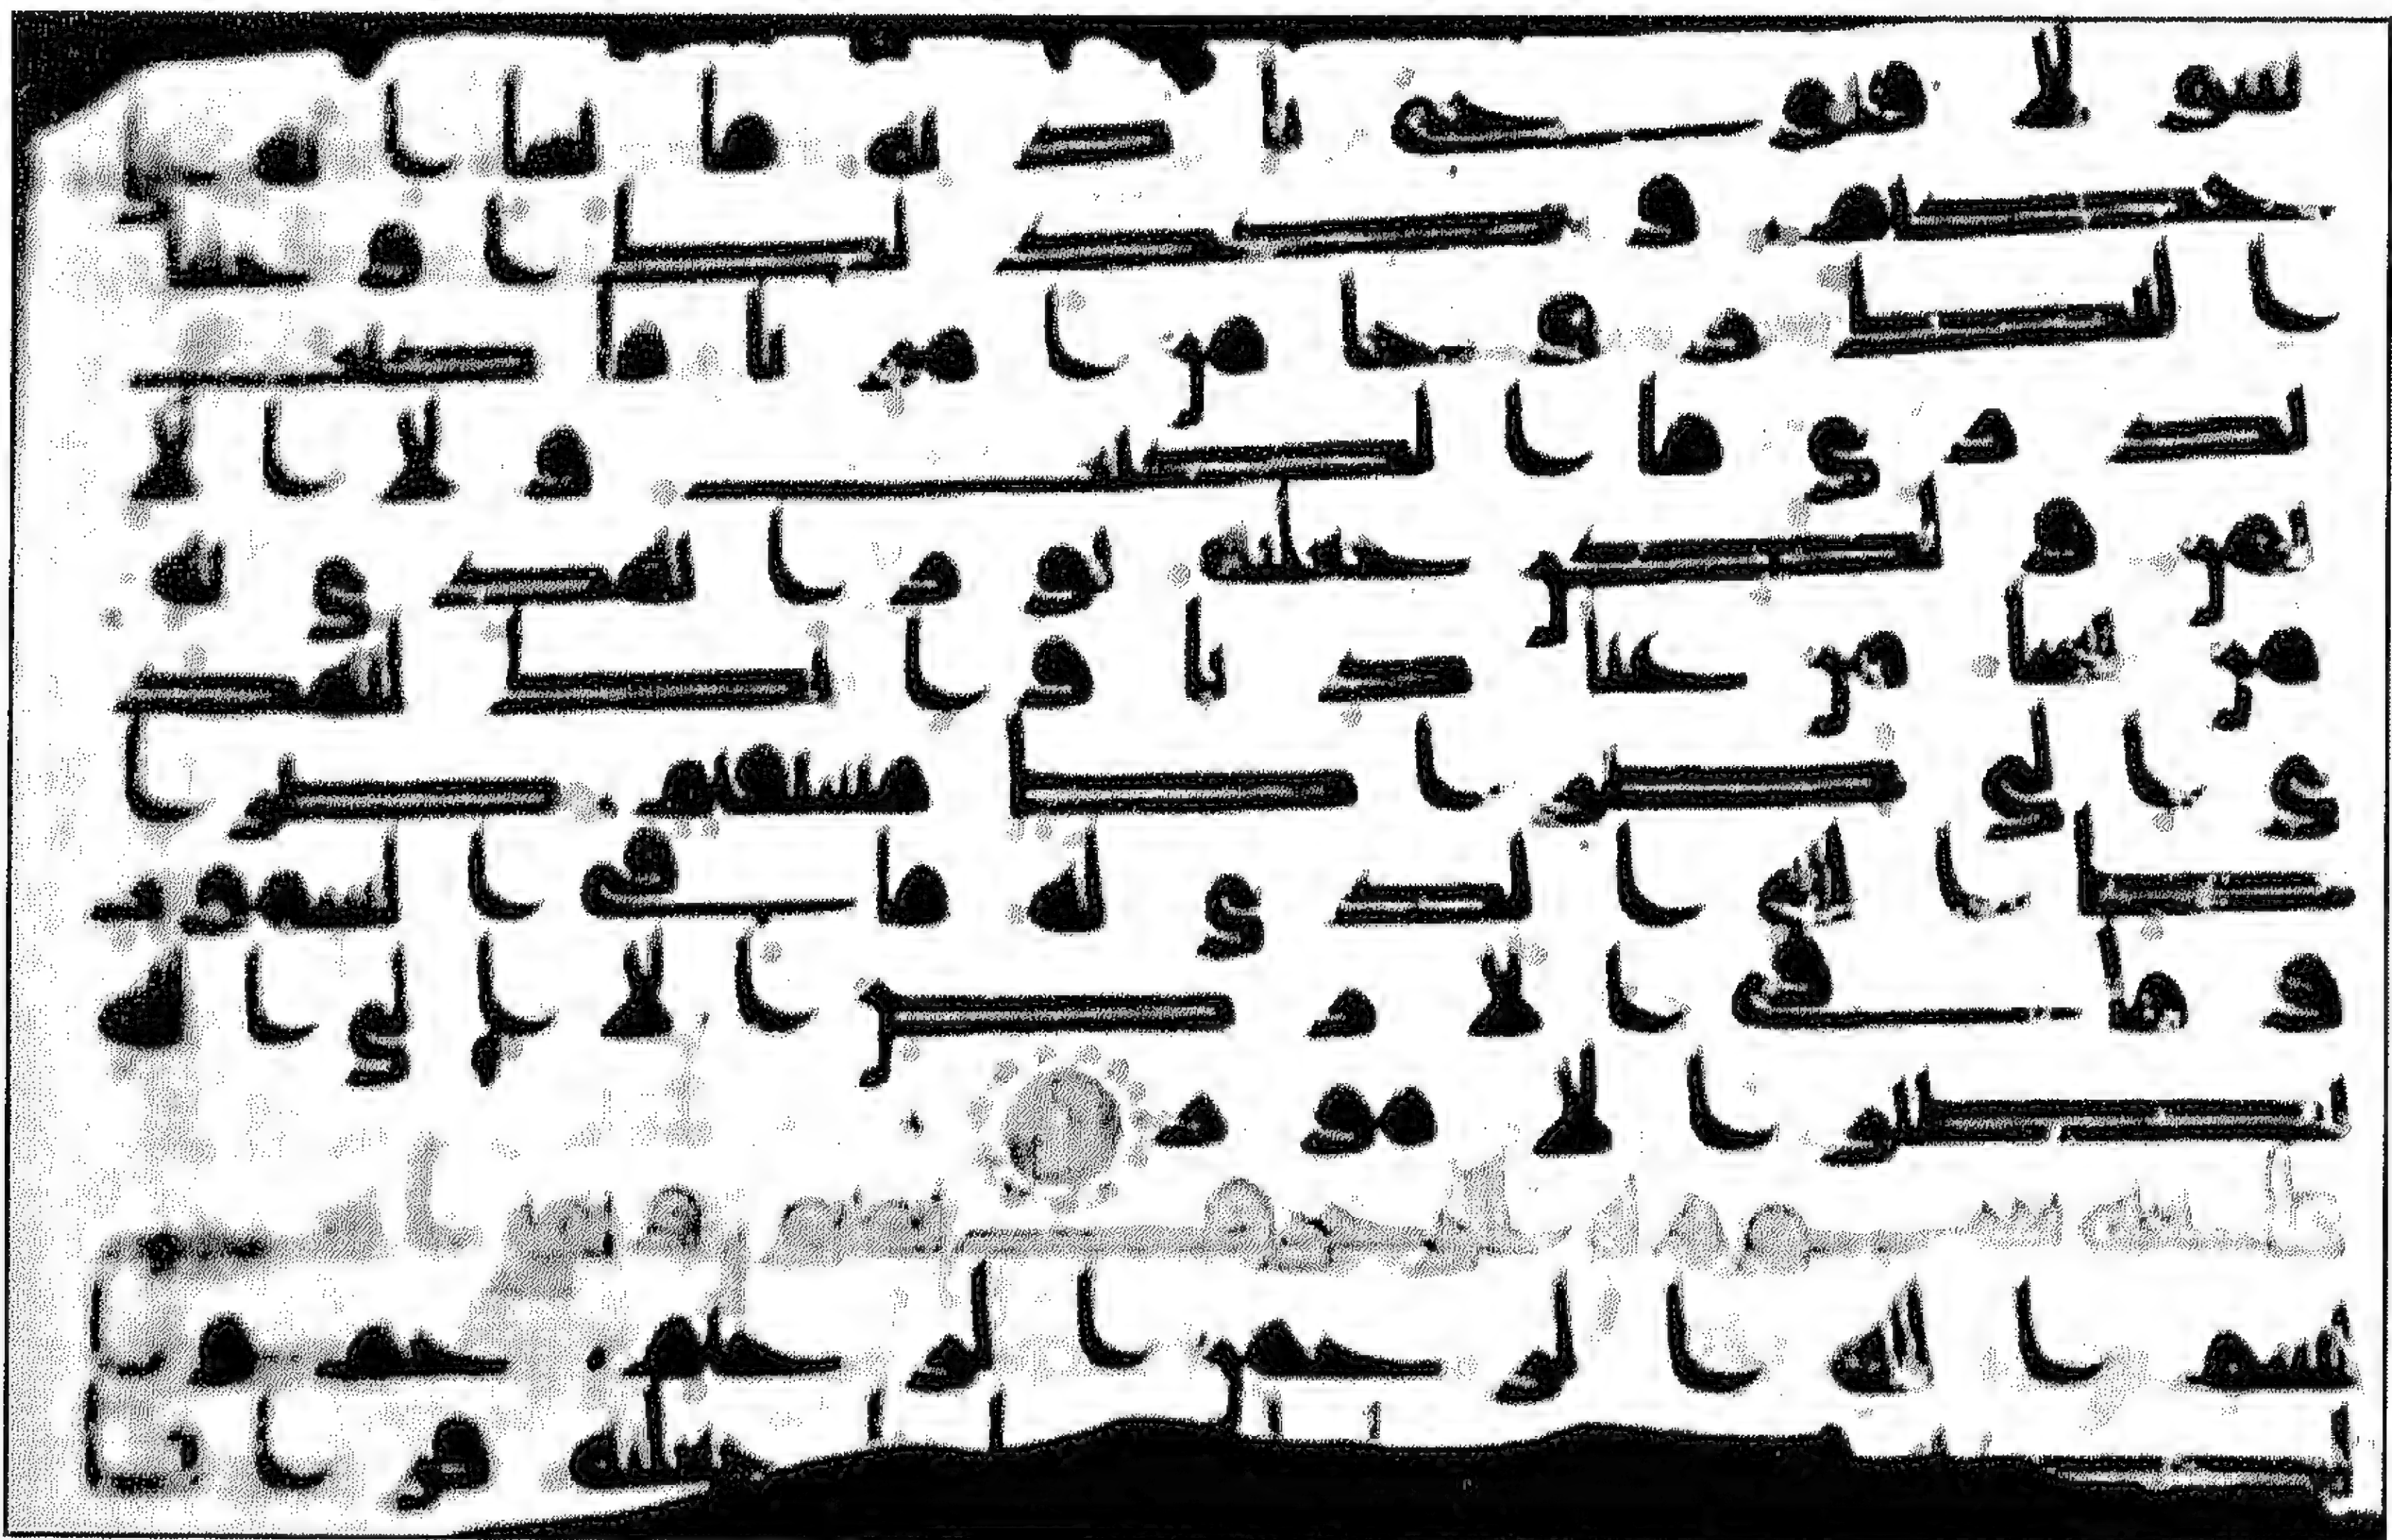 سولا فيوحى باذنه ما يشا انه على
حكيم وكذلك اوحينا
اليك روحا من امرنا ما كنت
تدرى ما الكتب ولا الا
يمن ولكن جعلنه نورا نهدى به
من نشا من عبادنا وانك لتهد
ى الى صراط مستقيم صر ا
ط الله الذى له ما فى السموت
وما فى الارض الا الى الله
تصير الامور
بسم الله الرحمن الرحيم حم وا
جعلنه قرانا